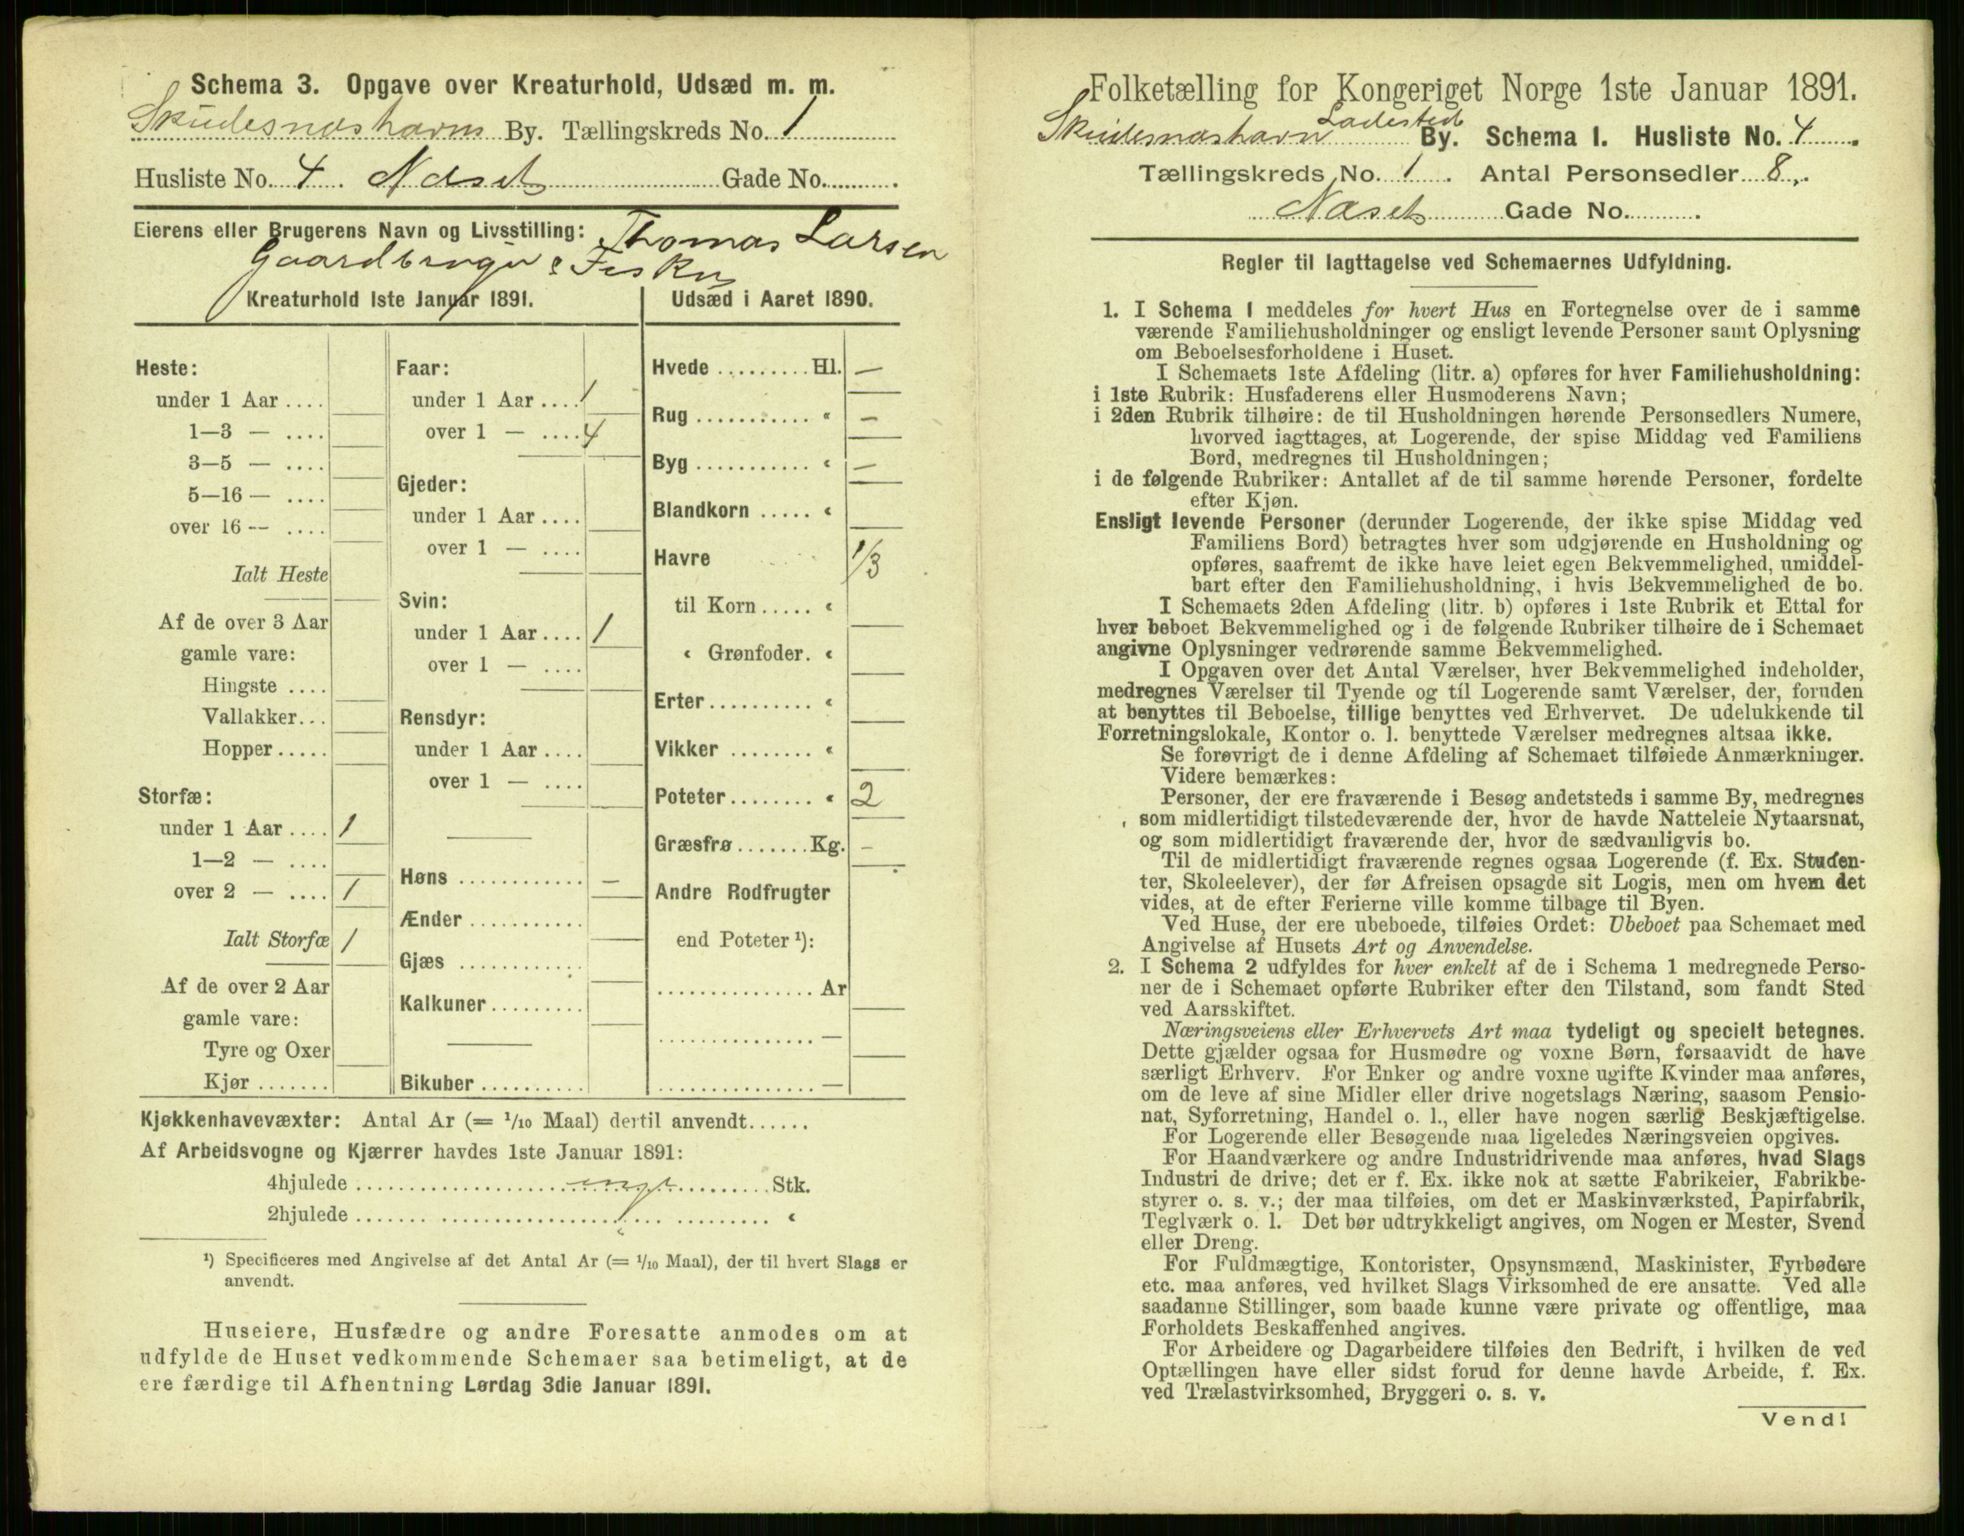 Schema 3. Opgave over Kreaturhold, Udsæd m. m.
Skudesnæshavns By. Tællingskreds No. 1
Husliste No. 4. Næset Gade No.
Eierens eller Brugerens Navn og Livsstilling: Thomas Larsen
Gaardbruger & Fisker
Kreaturhold 1ste Januar 1891.
Heste:
under 1 Aar ....
1—3 — ....
3—5 — ....
5—16 — ....
over 16 — ....
Ialt Heste
Af de over 3 Aar
gamle vare:
Hingste ....
Vallakker...
Hopper.....
Storfæ:
under 1 Aar .... 1
1—2 — ....
over 2 — .... 1
Ialt Storfæ 1
Af de over 2 Aar
gamle vare:
Tyre og Oxer
Kjør .......
Faar:
under 1 Aar .... 1
over 1 — .... 4
Gjeder:
under 1 Aar ....
over 1 — ....
Svin:
under 1 Aar .... 1
over 1 — ....
Rensdyr:
under 1 Aar ....
over 1 — ....
Høns ............ —
Ænder ...........
Gjæs ............
Kalkuner.........
Bikuber..........
Udsæd i Aaret 1890.
Hvede ......... Hl. —
Rug ........... « —
Byg ........... « —
Blandkorn ..... «
Havre 1/3
til Korn ..... «
« Grønfoder. «
Erter.......... «
Vikker ........ «
Poteter........ « 2
Græsfrø ....... Kg. —
Andre Rodfrugter
end Poteter ¹):
............... Ar
............... —
............... —
Kjøkkenhavevæxter: Antal Ar (= 1/10 Maal) dertil anvendt......
Af Arbeidsvogne og Kjærrer havdes 1ste Januar 1891:
4hjulede .......... inge .......... Stk.
2hjulede .......... «
¹) Specificeres med Angivelse af det Antal Ar (= 1/10 Maal), der til hvert Slags er
anvendt.
Huseiere, Husfædre og andre Foresatte anmodes om at
udfylde de Huset vedkommende Schemaer saa betimeligt, at de
ere færdige til Afhentning Lørdag 3die Januar 1891.
Folketælling for Kongeriget Norge 1ste Januar 1891.
Skudesnæshavn Ladested By. Schema 1. Husliste No. 4.
Tællingskreds No. 1. Antal Personsedler 8.
Næset Gade No.
Regler til Iagttagelse ved Schemaernes Udfyldning.
1. I Schema 1 meddeles for hvert Hus en Fortegnelse over de i samme
værende Familiehusholdninger og ensligt levende Personer samt Oplysning
om Beboelsesforholdene i Huset.
I Schemaets 1ste Afdeling (litr. a) opføres for hver Familiehusholdning:
i 1ste Rubrik: Husfaderens eller Husmoderens Navn;
i 2den Rubrik tilhøire: de til Husholdningen hørende Personsedlers Numere,
hvorved iagttages, at Logerende, der spise Middag ved Familiens
Bord, medregnes til Husholdningen;
i de følgende Rubriker: Antallet af de til samme hørende Personer, fordelte
efter Kjøn.
Ensligt levende Personer (derunder Logerende, der ikke spise Middag ved
Familiens Bord) betragtes hver som udgjørende en Husholdning og
opføres, saafremt de ikke have leiet egen Bekvemmelighed, umiddel-
bart efter den Familiehusholdning, i hvis Bekvemmelighed de bo.
I Schemaets 2den Afdeling (litr. b) opføres i 1ste Rubrik et Ettal for
hver beboet Bekvemmelighed og i de følgende Rubriker tilhøire de i Schemaet
angivne Oplysninger vedrørende samme Bekvemmelighed.
I Opgaven over det Antal Værelser, hver Bekvemmelighed indeholder,
medregnes Værelser til Tyende og til Logerende samt Værelser, der, foruden
at benyttes til Beboelse, tillige benyttes ved Erhvervet. De udelukkende til
Forretningslokale, Kontor o. l. benyttede Værelser medregnes altsaa ikke.
Se forøvrigt de i denne Afdeling af Schemaet tilføiede Anmærkninger.
Videre bemærkes:
Personer, der ere fraværende i Besøg andetsteds i samme By, medregnes
som midlertidigt tilstedeværende der, hvor de havde Natteleie Nytaarsnat,
og som midlertidigt fraværende der, hvor de sædvanligvis bo.
Til de midlertidigt fraværende regnes ogsaa Logerende (f. Ex. Studen-
ter, Skoleelever), der før Afreisen opsagde sit Logis, men om hvem det
vides, at de efter Ferierne ville komme tilbage til Byen.
Ved Huse, der ere ubeboede, tilføies Ordet: Ubeboet paa Schemaet med
Angivelse af Husets Art og Anvendelse.
2. I Schema 2 udfyldes for hver enkelt af de i Schema 1 medregnede Perso-
ner de i Schemaet opførte Rubriker efter den Tilstand, som fandt Sted
ved Aarsskiftet.
Næringsveiens eller Erhvervets Art maa tydeligt og specielt betegnes.
Dette gjælder ogsaa for Husmødre og voxne Børn, forsaavidt de have
særligt Erhverv. For Enker og andre voxne ugifte Kvinder maa anføres,
om de leve af sine Midler eller drive nogetslags Næring, saasom Pensio-
nat, Syforretning, Handel o. l., eller have nogen særlig Beskjæftigelse.
For Logerende eller Besøgende maa ligeledes Næringsveien opgives.
For Haandværkere og andre Industridrivende maa anføres, hvad Slags
Industri de drive; det er f. Ex. ikke nok at sætte Fabrikeier, Fabrikbe-
styrer o. s. v.; der maa tilføies, om det er Maskinværksted, Papirfabrik,
Teglværk o. l. Det bør udtrykkeligt angives, om Nogen er Mester, Svend
eller Dreng.
For Fuldmægtige, Kontorister, Opsynsmænd, Maskinister, Fyrbødere
etc. maa anføres, ved hvilket Slags Virksomhed de ere ansatte. Ved alle
saadanne Stillinger, som baade kunne være private og offentlige, maa
Forholdets Beskaffenhed angives.
For Arbeidere og Dagarbeidere tilføies den Bedrift, i hvilken de ved
Optællingen have eller sidst forud for denne havde Arbeide, f. Ex.
ved Trælastvirksomhed, Bryggeri o. s. v.
Vend!